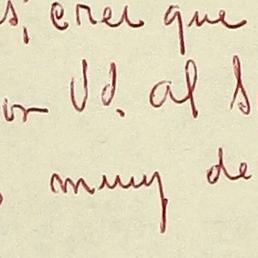 s, creí que
or Vd. al S
muy de